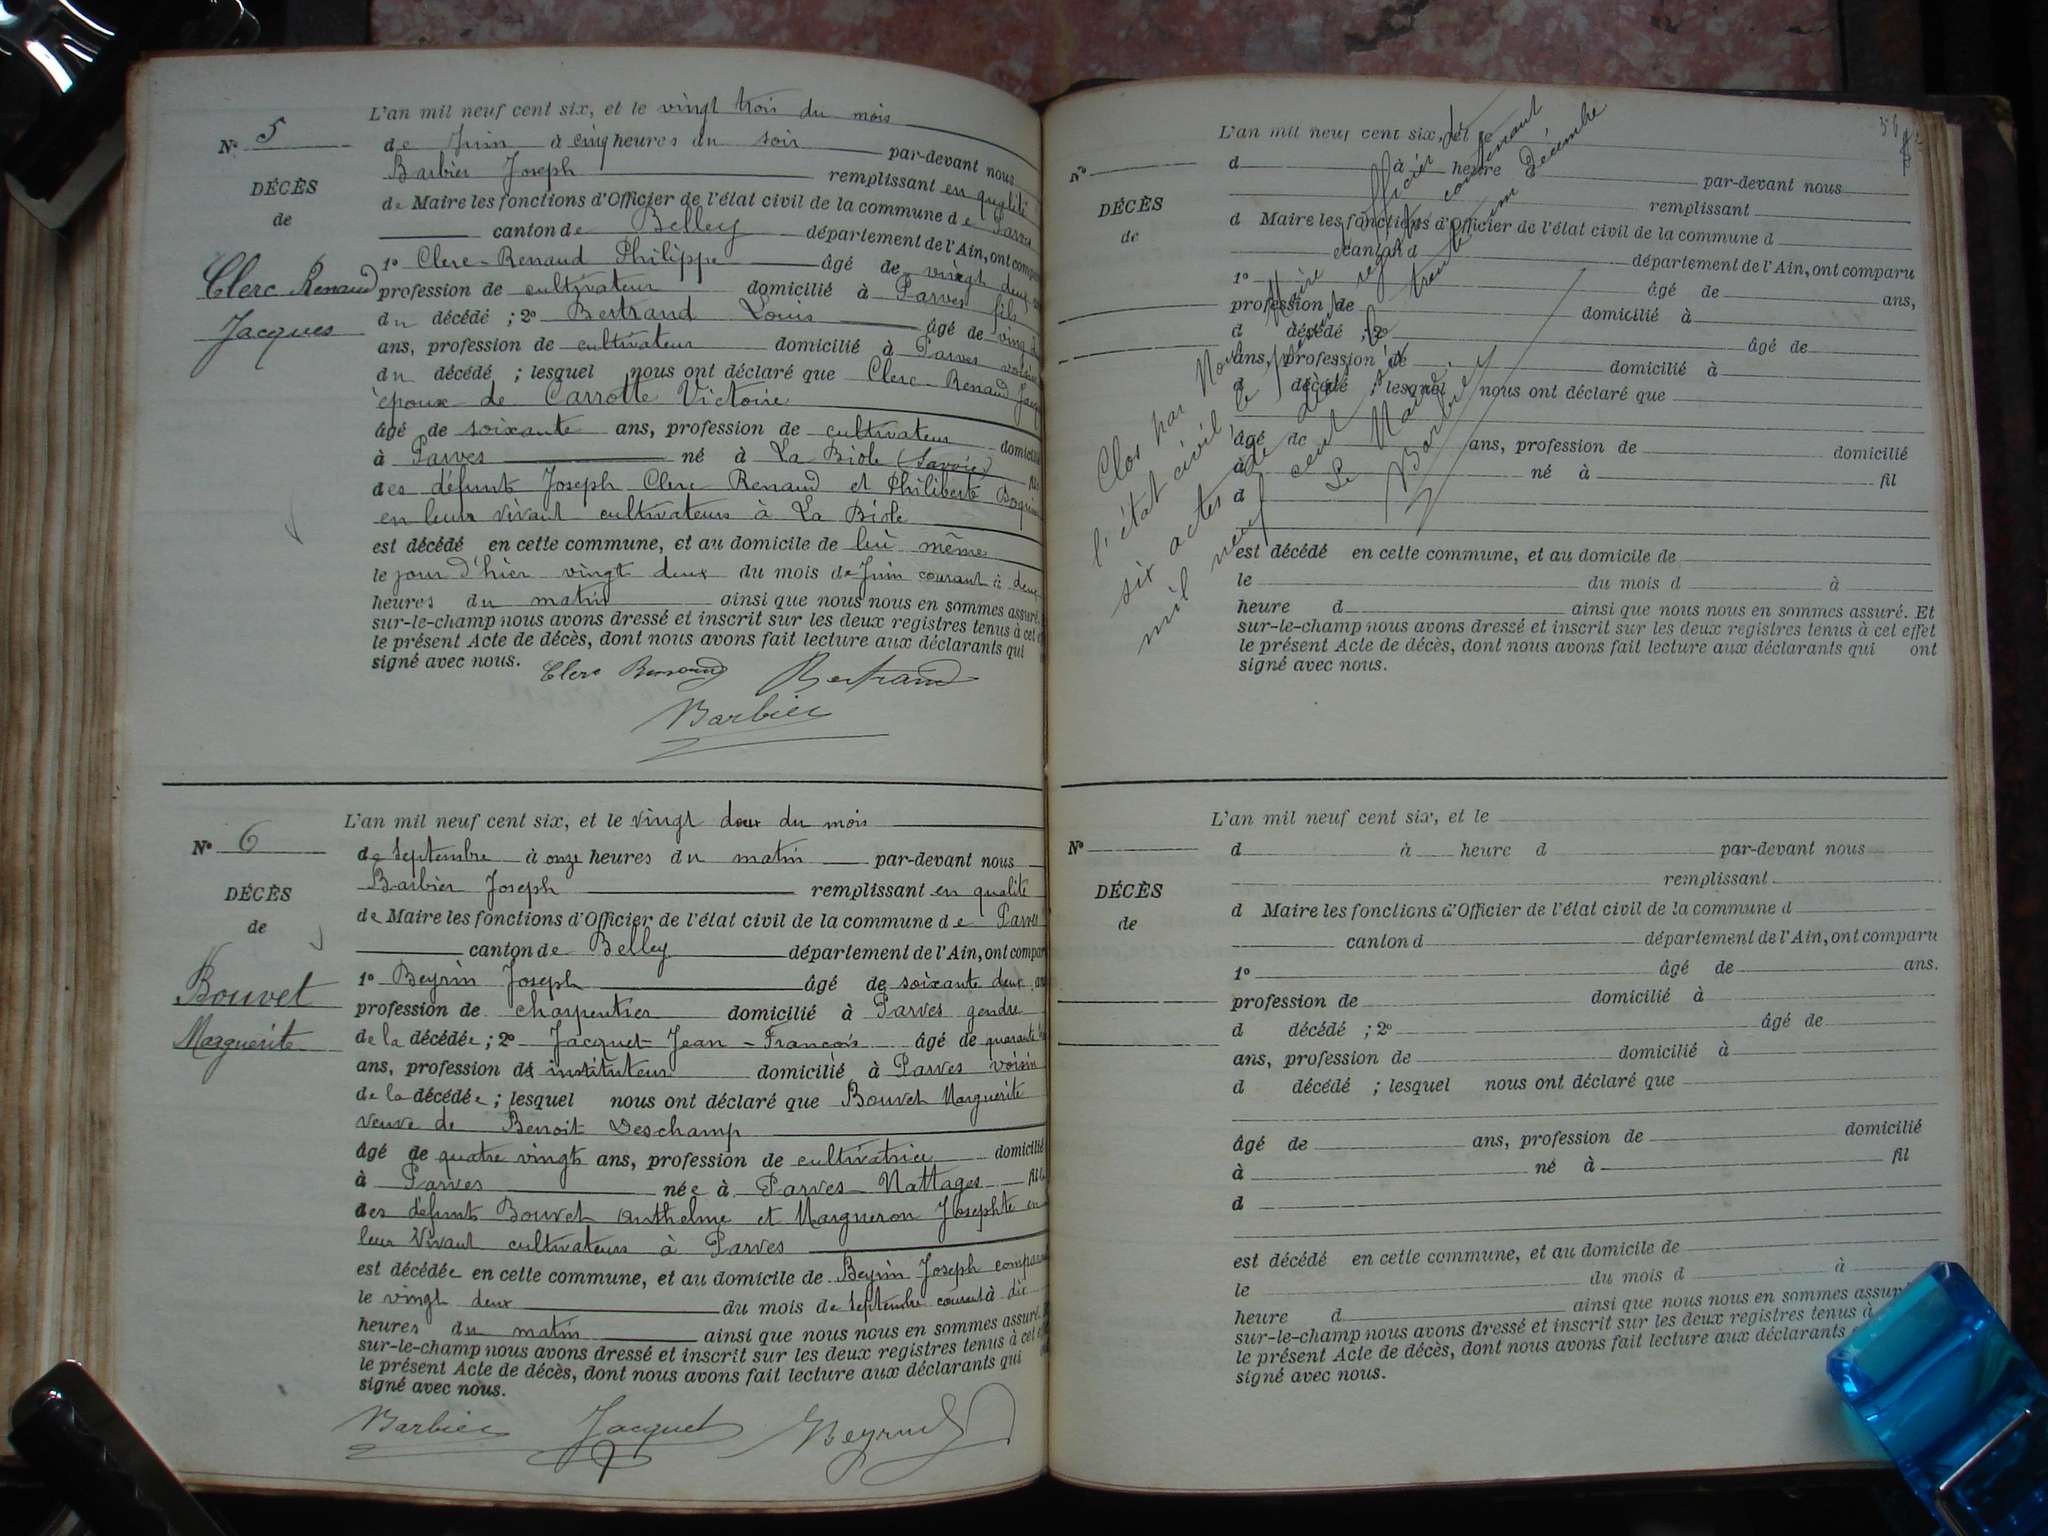 N° 5
DÉCÈS
de
Clerc Renaud
Jacques
L'an mil neuf cent six, et le vingt trois du mois
de Juin à cinq heures du soir par-devant nous
Barbier Joseph remplissant en qualité
de Maire les fonctions d'Officier de l'état civil de la commune de Parves
canton de Belley département de l'Ain, ont comparu
1° Clerc-Renaud Philippe âgé de vingt deux
profession de cultivateur domicilié à Parves fils
du décédé ; 2° Bertrand Louis âgé de
ans, profession de cultivateur domicilié à Parves voisin
du décédé ; lesquel nous ont déclaré que Clerc-Renaud Jacq
époux de Carrotte Victoire
âgé de soixante ans, profession de cultivateur domicilié
à Parves né à La Biole (Savoie)
des défunts Joseph Clerc Renaud et Philiberte
en leur vivant cultivateurs à La Biole
est décédé en cette commune, et au domicile de lui même
le jour d'hier vingt deux du mois de Juin courant à deux
heures du matin ainsi que nous nous en sommes assuré.
sur-le-champ nous avons dressé et inscrit sur les deux registres tenus à cet
le présent Acte de décès, dont nous avons fait lecture aux déclarants qui
signé avec nous.
Clerc Renaud Bertrand
Barbier
N° 6
DÉCÈS
de
Bouvet
Marguerite
L'an mil neuf cent six, et le vingt deux du mois
de septembre à onze heures du matin par-devant nous
Barbier Joseph remplissant en qualité
de Maire les fonctions d'Officier de l'état civil de la commune de Parves
canton de Belley département de l'Ain, ont compar
1° Beyrin Joseph âgé de soixante deux an
profession de charpentier domicilié à Parves gendre
de la décédée ; 2° Jacquet Jean-François âgé de quarante
ans, profession de instituteur domicilié à Parves voisin
de la décédée ; lesquel nous ont déclaré que Bouvet Marguerite
veuve de Benoit Deschamp
âgé de quatre vingts ans, profession de cultivatrice domicilié
à Parves née à Parves Nattages fille
des défunts Bouvet Anthelme et Margueron Josephte en
leur vivant cultivateurs à Parves
est décédée en cette commune, et au domicile de Beyrin Joseph compar
le vingt deux du mois de septembre courant à dix
heures du matin ainsi que nous nous en sommes assuré.
sur-le-champ nous avons dressé et inscrit sur les deux registres tenus à cet
le présent Acte de décès, dont nous avons fait lecture aux déclarants qui
signé avec nous.
Barbier Jacquet Beyrin
N°
DÉCÈS
de
L'an mil neuf cent six, et le
d à heure par-devant nous
remplissant
d Maire les fonctions d'Officier de l'état civil de la commune d
canton d département de l'Ain, ont comparu
1° âgé de ans,
profession de domicilié à
d décédé ; 2° âgé de
ans, profession de domicilié à
d décédé ; lesquel nous ont déclaré que
âgé de ans, profession de domicilié
à né à fil
d
est décédé en cette commune, et au domicile de
le du mois d à
heure d ainsi que nous nous en sommes assuré. Et
sur-le-champ nous avons dressé et inscrit sur les deux registres tenus à cet effet
le présent Acte de décès, dont nous avons fait lecture aux déclarants qui ont
signé avec nous.
Clos par Nous Maire officier de
l'état civil, le présent registre contenant
six actes de décès le trente un décembre
mil neuf cent six
Le Maire
Barbier
N°
DÉCÈS
de
L'an mil neuf cent six, et le
d à heure d par-devant nous
remplissant
d Maire les fonctions d'Officier de l'état civil de la commune d
canton d département de l'Ain, ont comparu
1° âgé de ans.
profession de domicilié à
d décédé ; 2° âgé de
ans, profession de domicilié à
d décédé ; lesquel nous ont déclaré que
âgé de ans, profession de domicilié
à né à fil
d
est décédé en cette commune, et au domicile de
le du mois d à
heure d ainsi que nous nous en sommes assur
sur-le-champ nous avons dressé et inscrit sur les deux registres tenus à
le présent Acte de décès, dont nous avons fait lecture aux déclarants
signé avec nous.